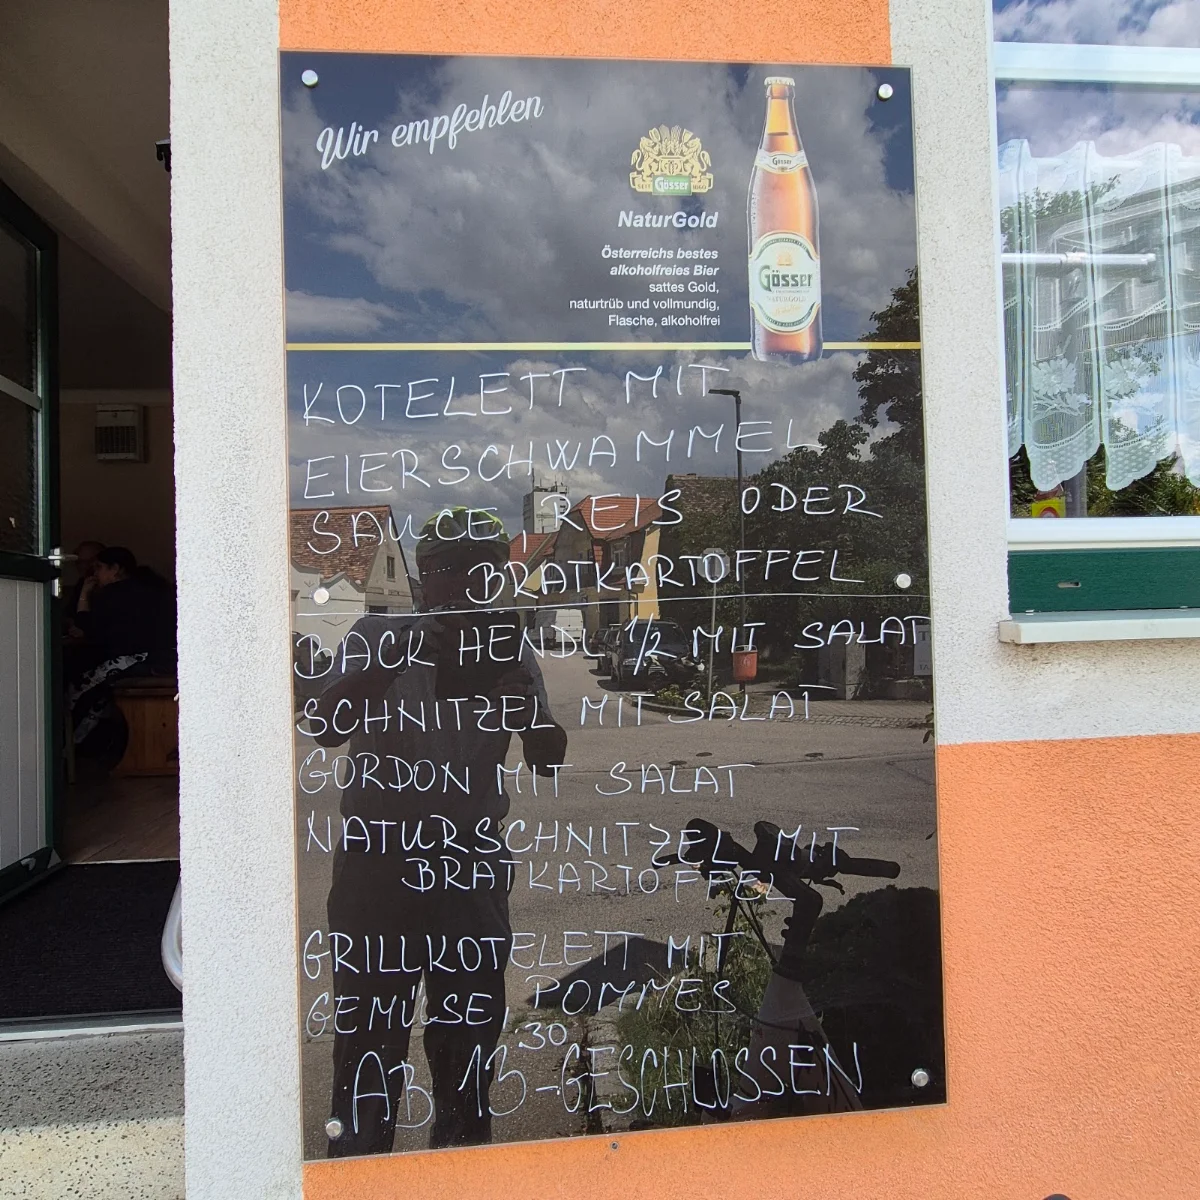 Wir empfehlen
Gösser
SEIT Gösser 1860
NaturGold
Österreichs bestes
alkoholfreies Bier
sattes Gold,
naturtrüb und vollmundig,
Flasche, alkoholfrei
Gösser
NATURGOLD
KOTELETT MIT
EIERSCHWAMMEL
SAUCE, REIS ODER
BRATKARTOFFEL
BACK HENDL 1/2 MIT SALAT
SCHNITZEL MIT SALAT
GORDON MIT SALAT
NATURSCHNITZEL MIT
BRATKARTOFFEL
GRILLKOTELETT MIT
GEMÜSE, POMMES
AB 13 30 - GESCHLOSSEN